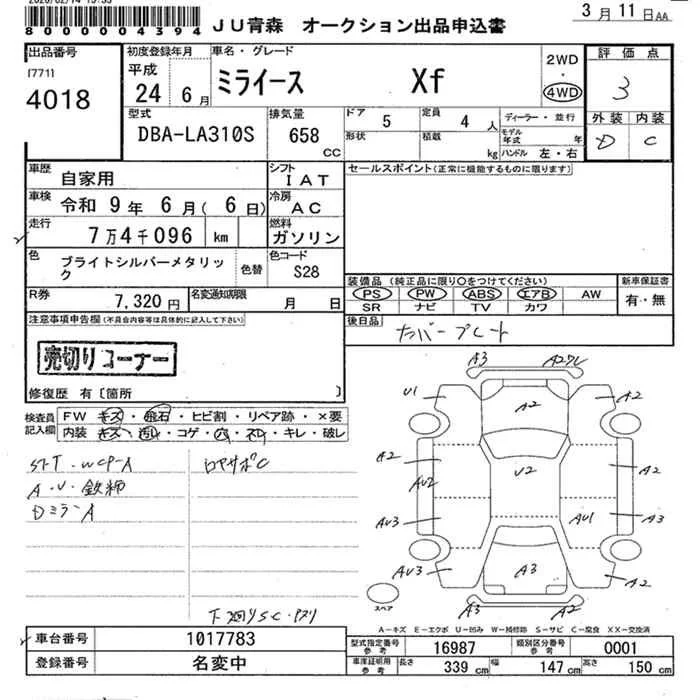 8000004394 JU青森 オークション出品申込書 3月11日AA
出品番号 初度登録年月 車名・グレード 2WD・4WD 評価点
[771] 平成 24 6月 ミライース Xf 3
4018
型式 排気量 ドア 5 定員 4人 ディーラー・並行 外装 内装
DBA-LA310S 658 CC 形状 積載 kg モデル年式 年 D C
ハンドル 左・右
車歴 自家用 シフト IAT セールスポイント(正常に機能するものに限ります)
車検 令和 9年 6月( 6日) 冷房 AC
走行 7万4千096 km 燃料 ガソリン
色 ブライトシルバーメタリック 色替 色コード S28
装備品 (純正品に限り○をつけてください) 新車保証書
R券 7,320円 名変通知期限 月 日 PS PW ABS エアB AW 有・無
SR ナビ TV カワ
注意事項申告欄(不具合内容等は具体的に記入して下さい) 後日品 ナンバープレート
売切りコーナー
修復歴 有〔箇所 〕
検査員記入欄 FW キズ・飛石・ヒビ割・リペア跡・×要
内装 キズ・汚れ・コゲ・穴・ネリ・キレ・破レ
STT・WCP-A ロアサポC
A・U・鉄柄
DミラーA
下廻りSC・
A3
U1 A2 A2
A2 U2 A2
AU2
AU3 AU1 A3
AU3 A3 A2
スペア A3 A2
A-キズ E-エクボ U-凹み W-補修跡 S-サビ C-腐食 XX-交換済
車台番号 1017783 型式指定番号参考 16987 類別区分番号参考 0001
登録番号 名変中 車庫証明用参考 長さ 339cm 幅 147cm 高さ 150cm